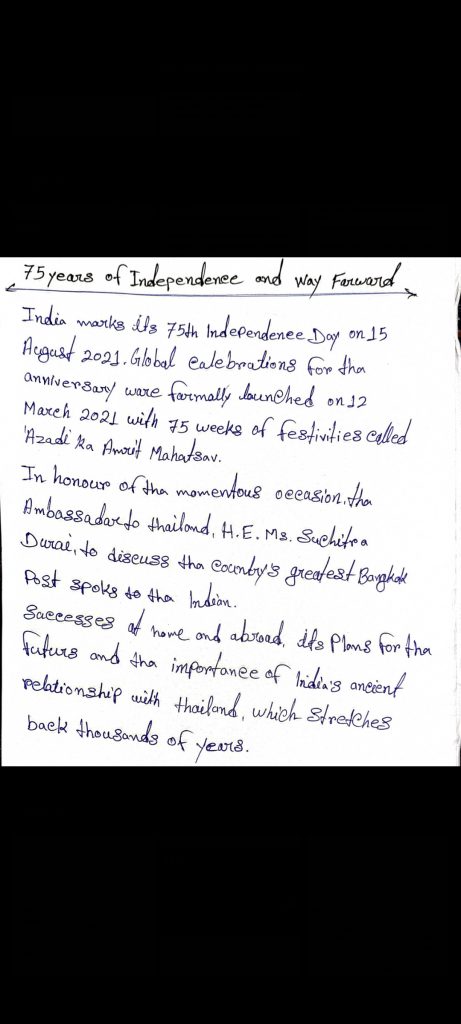 75 years of Independence and way Forward
India marks its 75th Independence Day on 15
August 2021. Global celebrations for tha
anniversary ware formally launched on 12
March 2021 with 75 weeks of festivities called
'Azadi ka Amrit Mahatsav.
In honour of tha momentous occasion, tha
Ambassadar to thailand, H.E. Ms. Suchitra
Durai, to discuss tha country's greatest Bangkok
Post spoks to tha Indian.
Successes at home and abroad, its Plans for tha
futurs and tha importance of India's ancient
relationship with thailand, which stretches
back thousands of years.